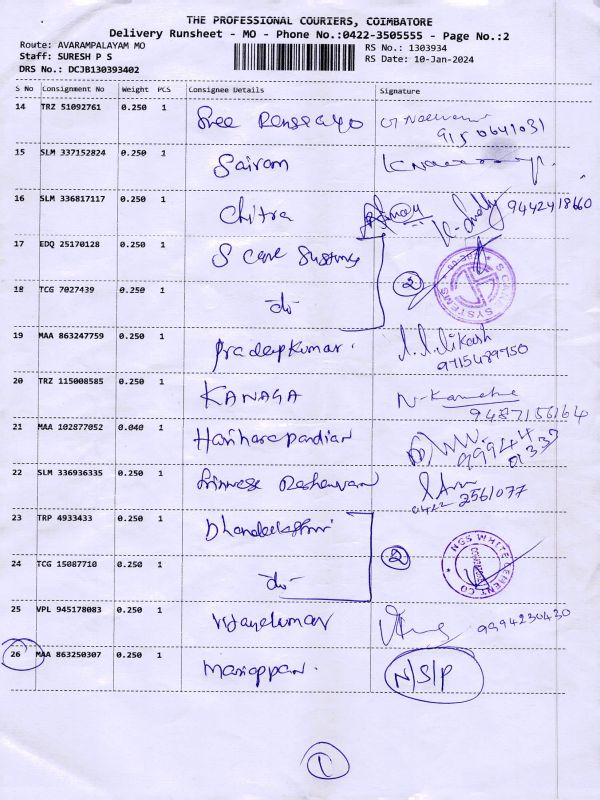 THE PROFESSIONAL COURIERS, COIMBATORE
Delivery Runsheet - MO - Phone No.:0422-3505555 - Page No.:2
Route: AVARAMPALAYAM MO
Staff: SURESH P S
DRS No.: DCJB130393402
RS No.: 1303934
RS Date: 10-Jan-2024
S No Consignment No Weight PCS Consignee Details Signature
14 TRZ 51092761 0.250 1 Sree
9150641031
15 SLM 337152824 0.250 1 Sairam
16 SLM 336817117 0.250 1 Chitra 9442418660
17 EDQ 25170128 0.250 1 S Care Systems
2
S CARE SYSTEMS
18 TCG 7027439 0.250 1 -do-
19 MAA 863247759 0.250 1 Pradeepkumar.
9715489750
20 TRZ 115008585 0.250 1 KANAGA N-
9487156164
21 MAA 102877052 0.040 1 Hariharapandian
99944
01337
22 SLM 336936335 0.250 1
0422 2561077
23 TRP 4933433 0.250 1
2
NGS WHITE CEMENT CO
24 TCG 15087710 0.250 1 -do-
25 VPL 945178083 0.250 1 Vijayakumar 9994230430
26 MAA 863250307 0.250 1 Mariappan. N/S/P
1